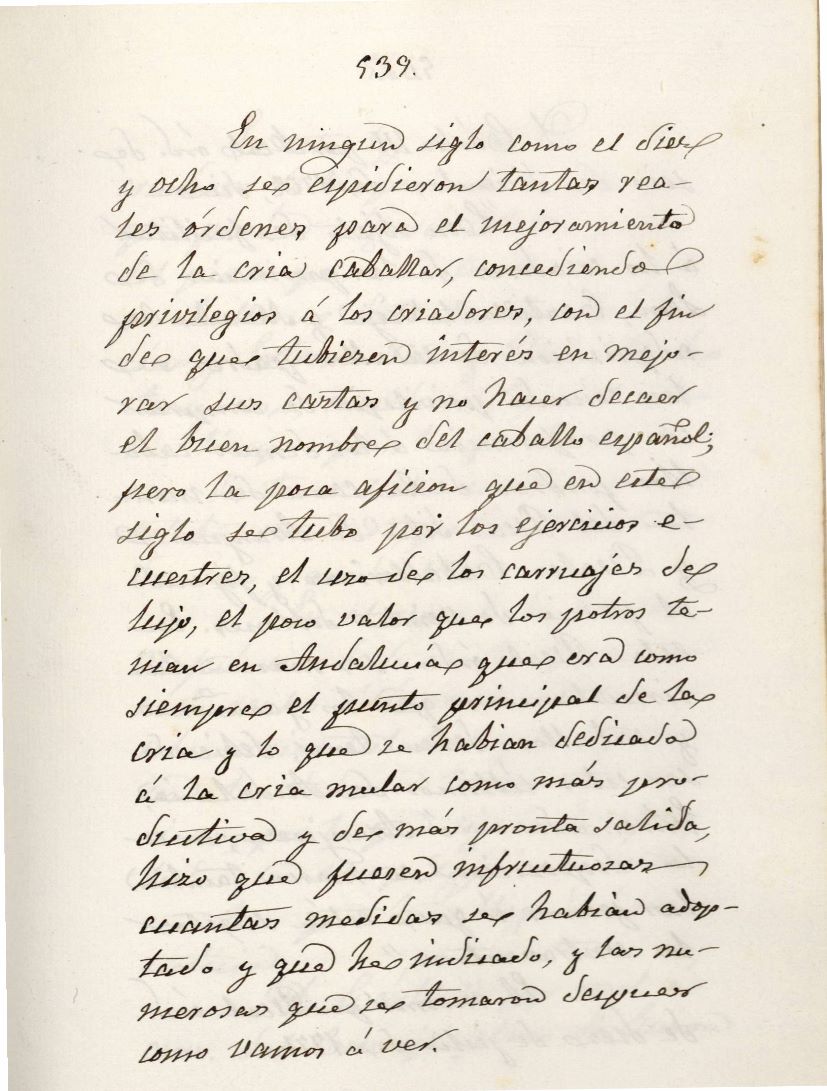 539.
En ningun siglo como el diez
y ocho se espidieron tantas rea-
les órdenes para el mejoramiento
de la cria caballar, concediendo
privilegios á los criadores, con el fin
de que tubiesen interés en mejo-
rar sus castas y no hacer decaer
el buen nombre del caballo español;
pero la poca aficion que en este
siglo se tubo por los ejercicios e-
cuestres, el uso de los carruajes de
lujo, el poco valor que los potros te-
nian en Andalucía que era como
siempre el punto principal de la
cria y lo que se habian dedicado
á la cria mular como más pro-
ductiva y de más pronta salida,
hizo que fuesen infructuosas
cuantas medidas se habian adop-
tado y que he indicado, y las nu-
merosas que se tomaron despues
como vamos á ver.